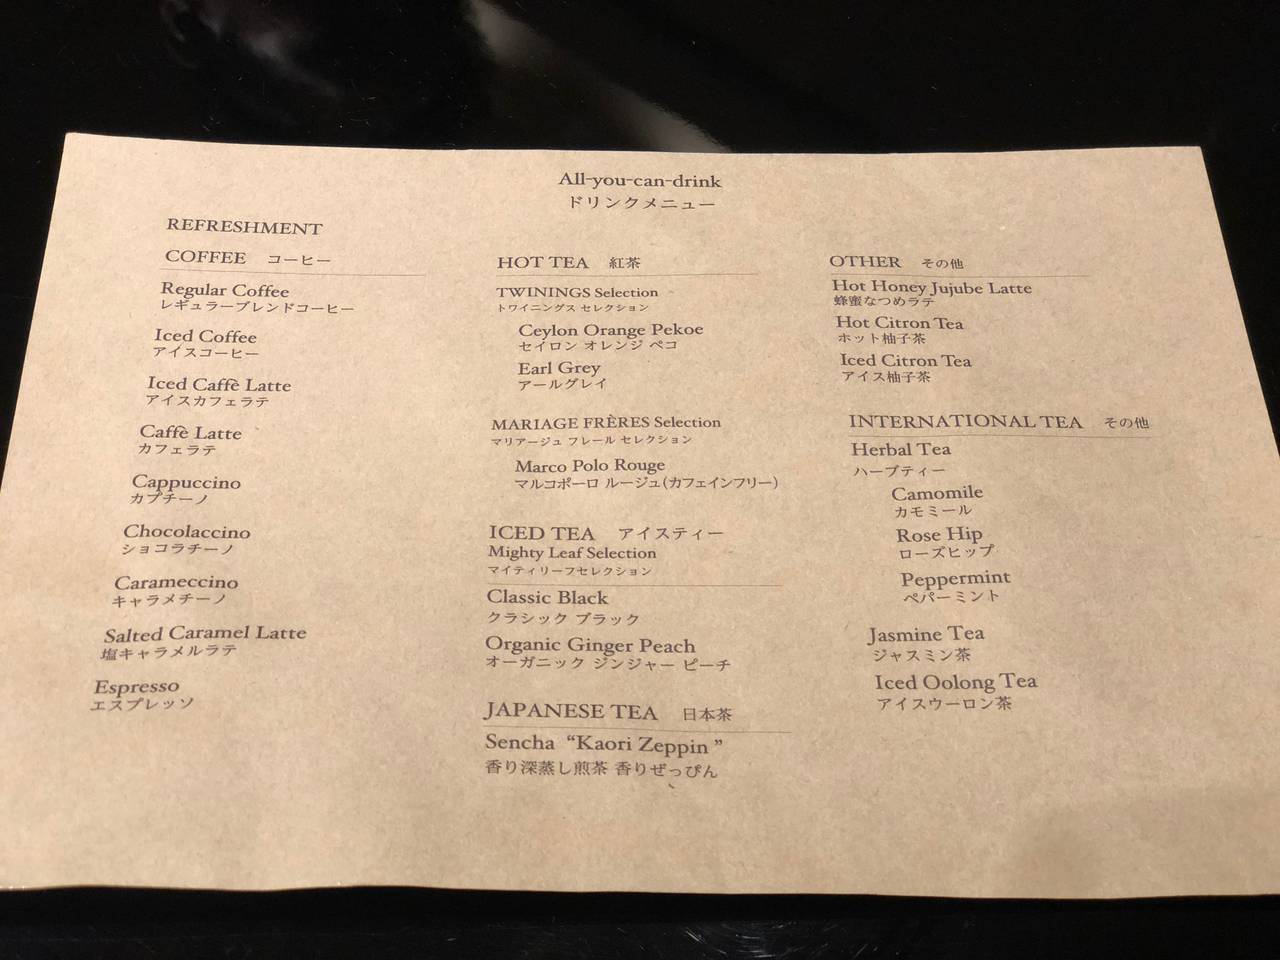 All-you-can-drink
ドリンクメニュー
REFRESHMENT
COFFEE コーヒー
Regular Coffee
レギュラーブレンドコーヒー
Iced Coffee
アイスコーヒー
Iced Caffè Latte
アイスカフェラテ
Caffè Latte
カフェラテ
Cappuccino
カプチーノ
Chocolaccino
ショコラチーノ
Carameccino
キャラメチーノ
Salted Caramel Latte
塩キャラメルラテ
Espresso
エスプレッソ
HOT TEA 紅茶
TWININGS Selection
トワイニングス セレクション
Ceylon Orange Pekoe
セイロン オレンジ ペコ
Earl Grey
アールグレイ
MARIAGE FRÈRES Selection
マリアージュ フレール セレクション
Marco Polo Rouge
マルコポーロ ルージュ(カフェインフリー)
ICED TEA アイスティー
Mighty Leaf Selection
マイティリーフセレクション
Classic Black
クラシック ブラック
Organic Ginger Peach
オーガニック ジンジャー ピーチ
JAPANESE TEA 日本茶
Sencha “Kaori Zeppin ”
香り深蒸し煎茶 香りぜっぴん
OTHER その他
Hot Honey Jujube Latte
蜂蜜なつめラテ
Hot Citron Tea
ホット柚子茶
Iced Citron Tea
アイス柚子茶
INTERNATIONAL TEA その他
Herbal Tea
ハーブティー
Camomile
カモミール
Rose Hip
ローズヒップ
Peppermint
ペパーミント
Jasmine Tea
ジャスミン茶
Iced Oolong Tea
アイスウーロン茶